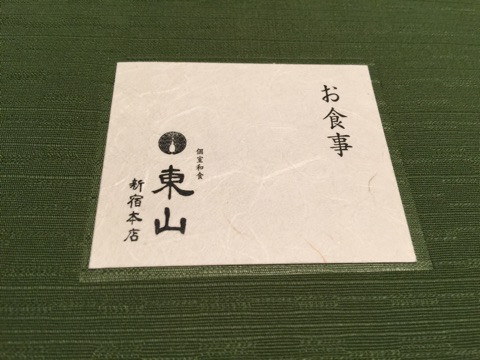 お食事
個室和食
東山
新宿本店